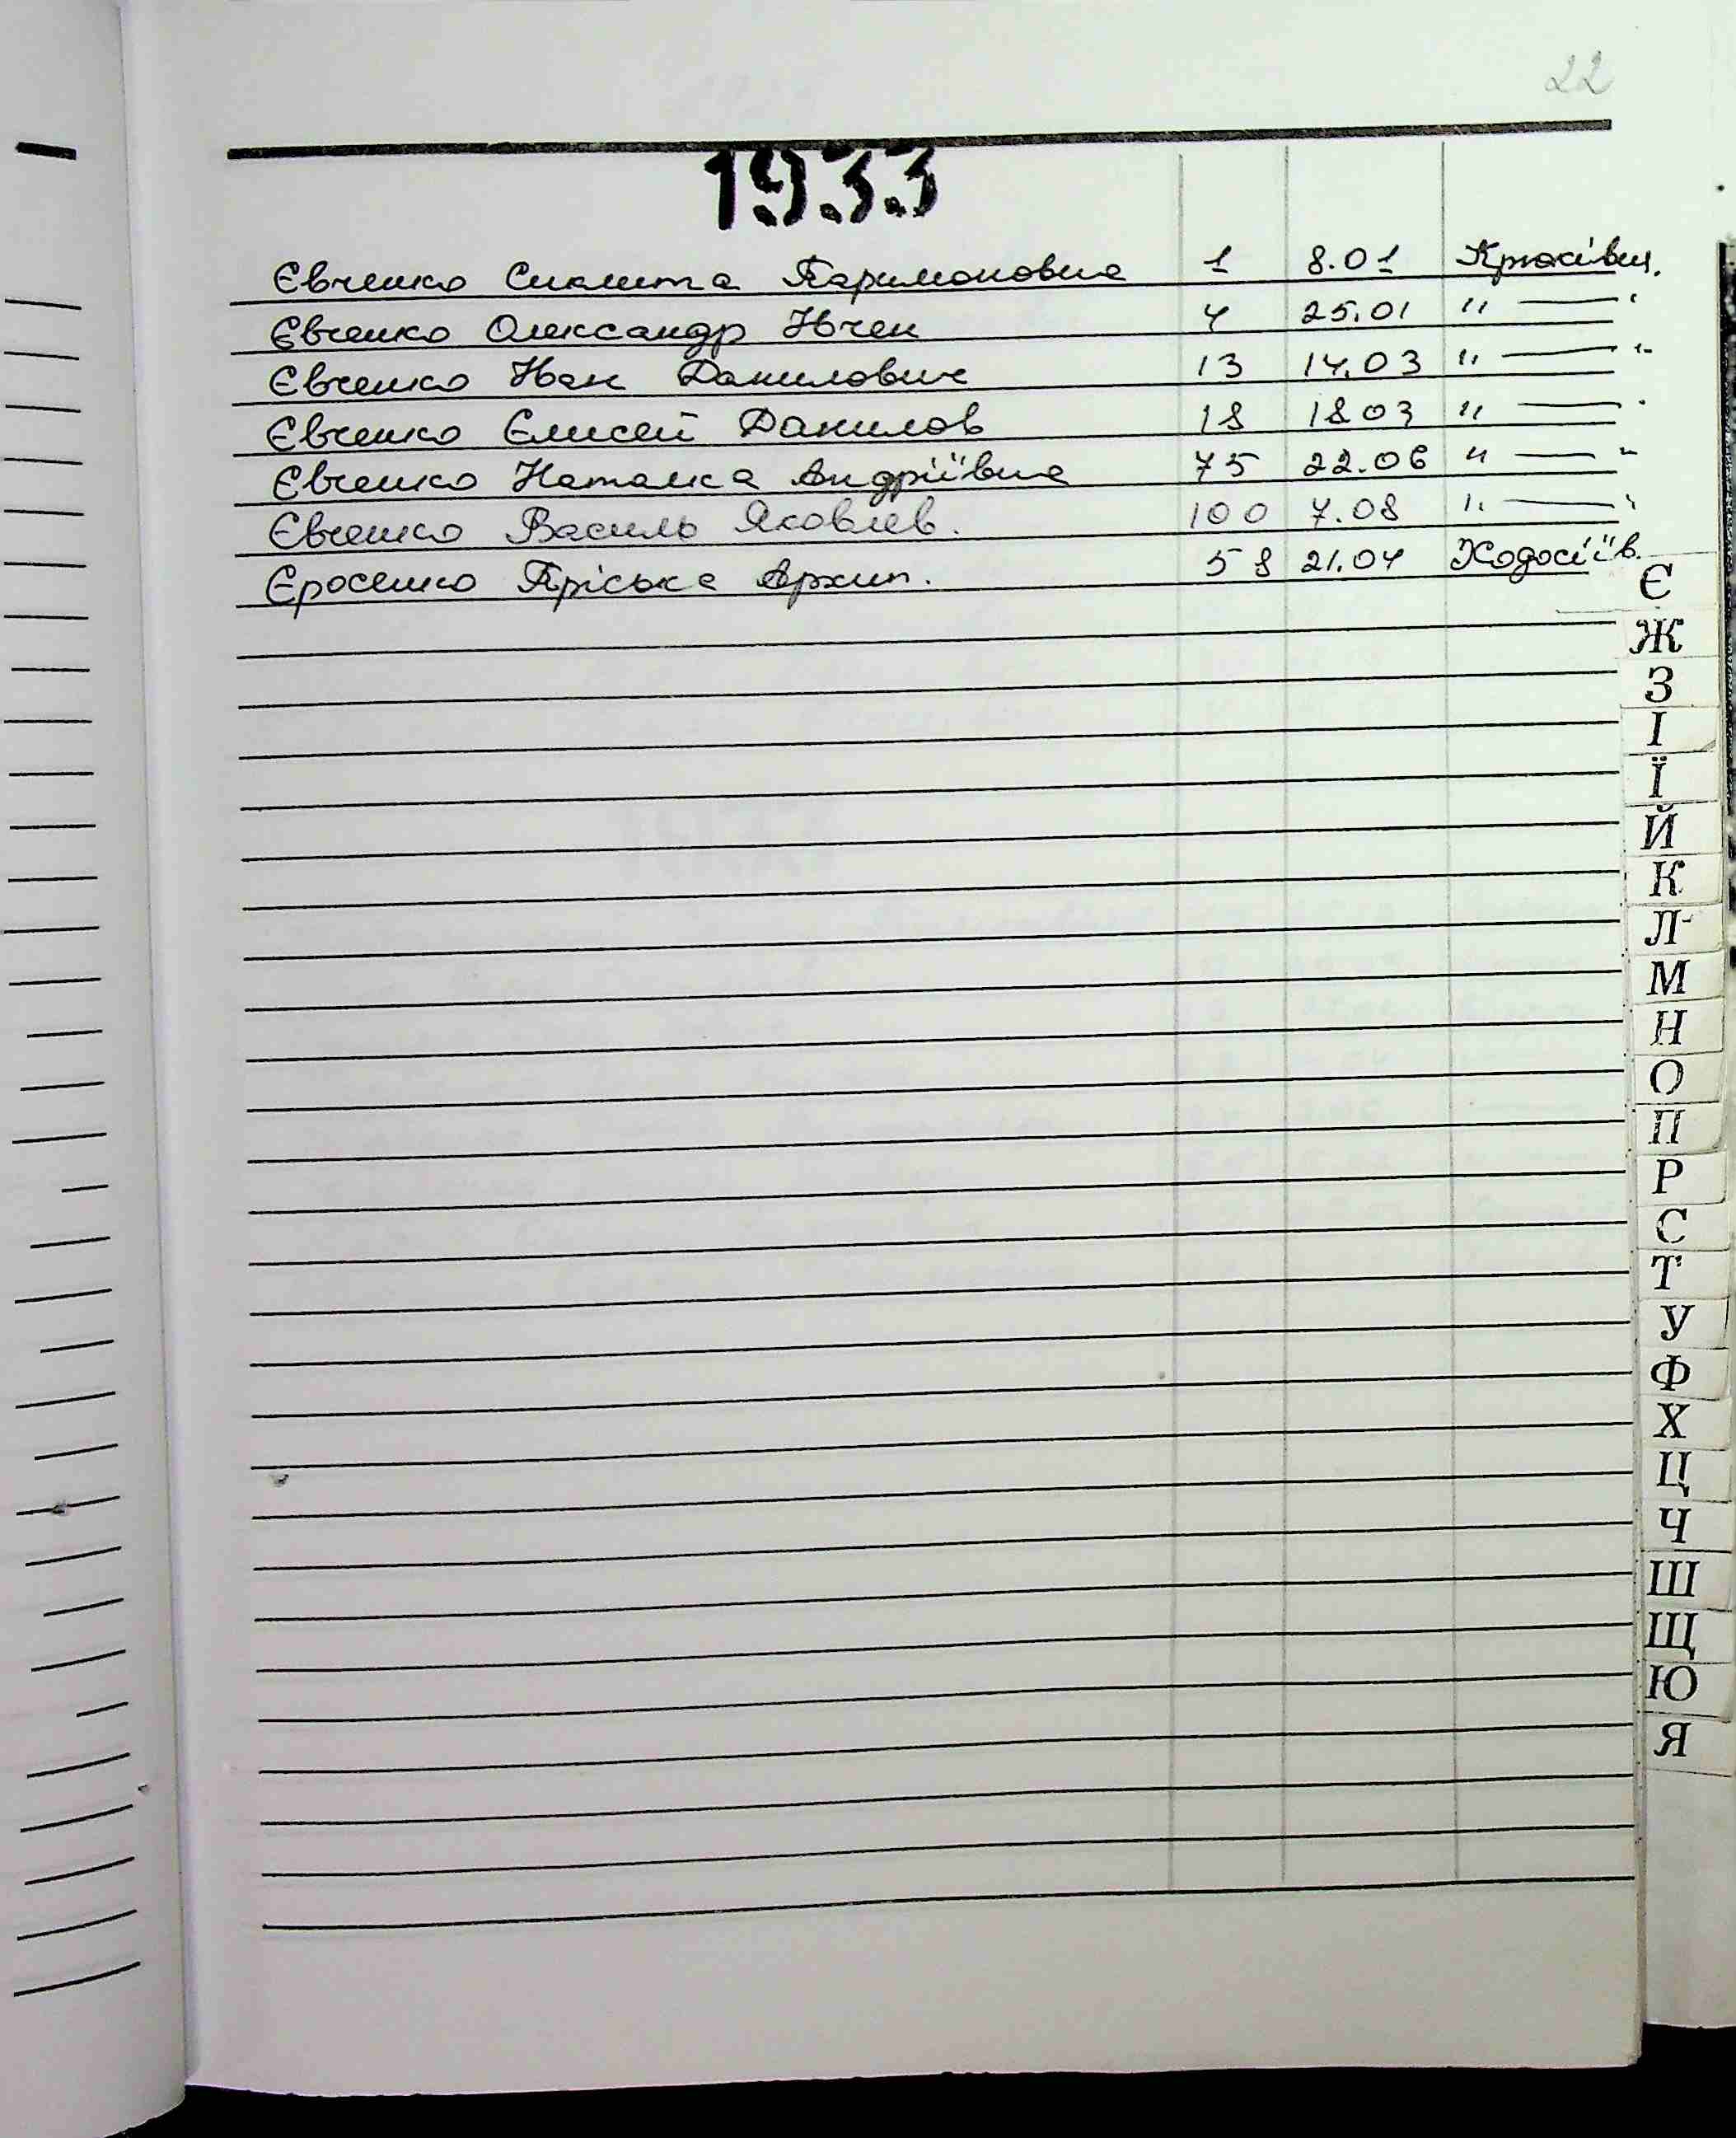 22
1933
Євченко Сиклита Паримоновна 1 8.01 Крюківщ.
Євченко Олександр Івчен 4 25.01 " — "
Євченко Іван Данилович 13 14.03 " — "
Євченко Єлисей Данилов 18 18 03 " — "
Євченко Наталка Андріївна 75 22.06 " — "
Євченко Василь Яковлев. 100 7.08 " — "
Єросенко Пріська Архип. 58 21.04 Ходосіїв.
Є
Ж
З
І
Ї
Й
К
Л
М
Н
О
П
Р
С
Т
У
Ф
Х
Ц
Ч
Ш
Щ
Ю
Я